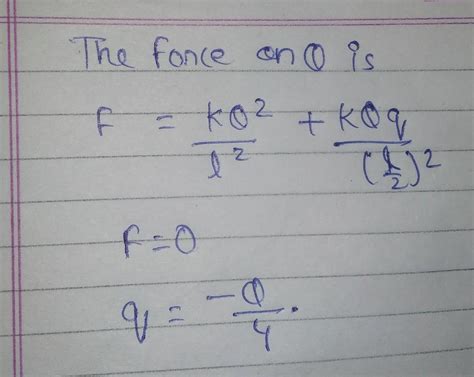 The force on Q is
F = kQ²/l² + kQq/(l/2)²
F=0
q = -Q/4.